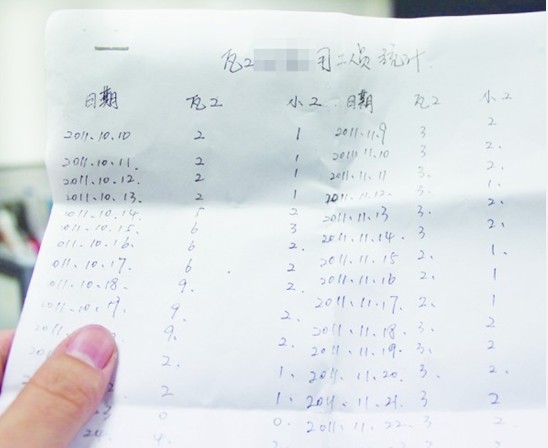 瓦工 用工员统计
日期 瓦工 小工 日期 瓦工 小工
2011.10.10 2 1 2011.11.9 3 2
2011.10.11. 2 1 2011.11.10 3 2.
2011.10.12. 2 1 2011.11.11 3. 2.
2011.10.13. 2 1 2011.11.12. 3 1.
011.10.14. 5 2 2011.11.13 3. 2.
011.10.15. 6 3 2011.11.14. 3 2.
011.10.16. 6 2. 2011.11.15 2. 1.
011.10.17. 6 2 2011.11.16 2. 1
011.10.18. 9. 2. 2011.11.17. 2. 1
011.10.19. 9. 2. 2011.11.18. 3. 2
9. 2. 2011.11.19. 3. 2
2. 1. 2011.11.20. 3 2
2 1. 2011.11.21. 3 2
0 0. 2011.11.22. 3 2
4.